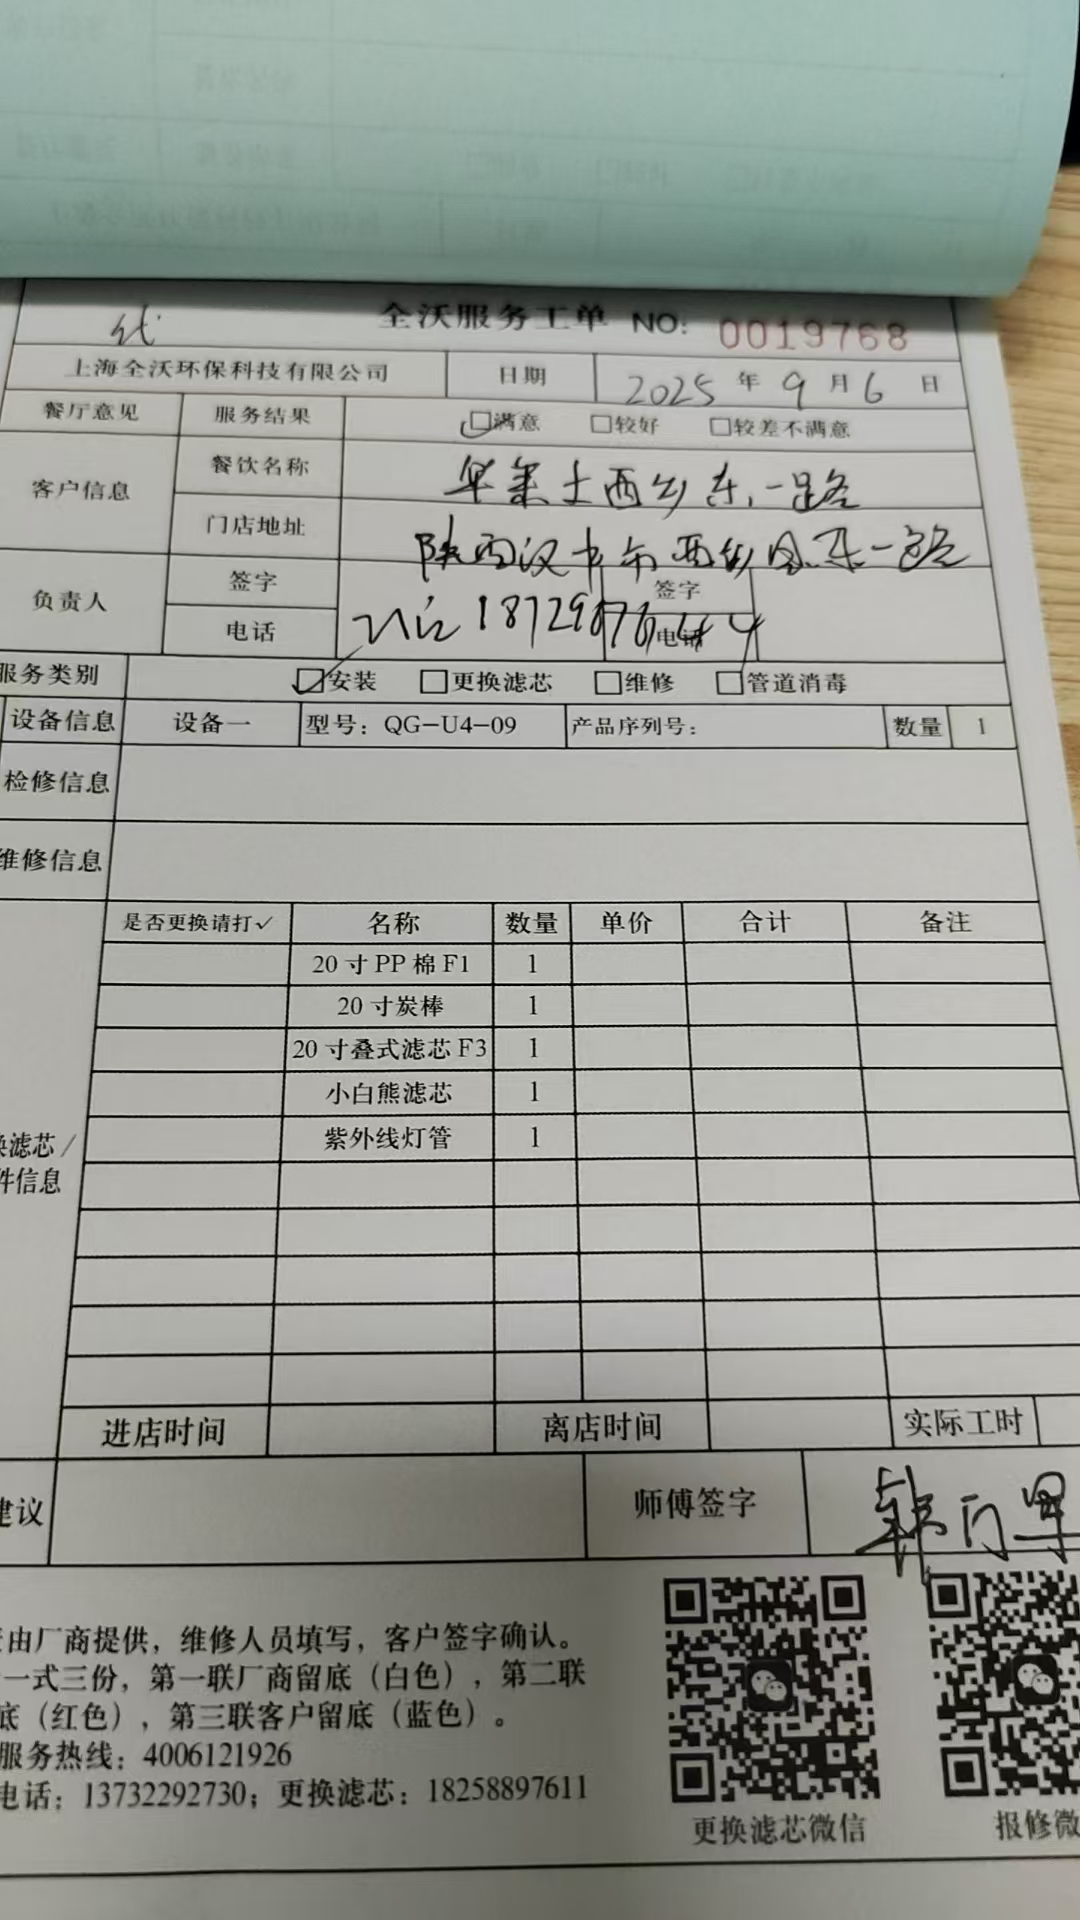 代
全沃服务工单 NO: 0019768
上海全沃环保科技有限公司 日期 2025 年 9 月 6 日
餐厅意见 服务结果 □满意 □较好 □较差不满意
客户信息 餐饮名称 华莱士西乡东一路
门店地址 陕西汉中市西乡县东一路
负责人 签字 签字
电话 电话
服务类别 □安装 □更换滤芯 □维修 □管道消毒
设备信息 设备一 型号：QG-U4-09 产品序列号： 数量 1
检修信息
维修信息
是否更换请打✓ 名称 数量 单价 合计 备注
20 寸 PP 棉 F1 1
20 寸炭棒 1
20 寸叠式滤芯 F3 1
小白熊滤芯 1
紫外线灯管 1
换滤芯/
件信息
进店时间 离店时间 实际工时
建议 师傅签字 韩
由厂商提供，维修人员填写，客户签字确认。
一式三份，第一联厂商留底（白色），第二联
底（红色），第三联客户留底（蓝色）。
服务热线：4006121926
电话：13732292730；更换滤芯：18258897611
更换滤芯微信
报修微